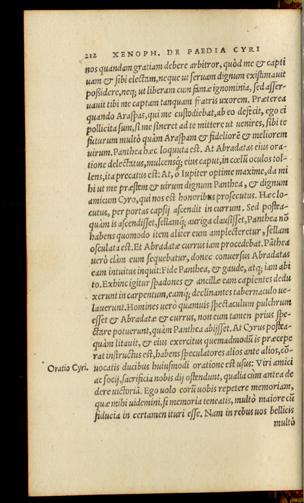 212 XENOPH. DE PAEDIA CYRI
nos quandam gratiam debere arbitror, quòd me & capti
uam & sibi electam, neque ut seruam dignum existimauit
possidere, neq; ut liberam cum famæ ignominia, sed asser-
uauit tibi me captam tanquam fratris uxorem. Præterea
quando Araspas, qui me custodiebat, ab eo defecit, ego ei
pollicita sum, si me sineret ad te mittere ut uenires, sibi te
futurum multò quàm Araspam & fideliorē & meliorem
uirum. Panthea hæc loquuta est. At Abradatas eius orat
tione delectatus, mulcensq; eius caput, in cœlū oculos tol
lens, ita precatus est: At, ô Iupiter optime maxime, da mi
hi ut me præstem & uirum dignum Panthea, & dignum
amicum Cyro, qui nos est honoribus prosecutus. Hæc lo
cutus, per portas capsi ascendit in currum. Sed postea-
quàm is ascendisset, sellamq; auriga clausisset, Panthea nō
habens quomodo item aliter eum amplecteretur, sellam
osculata est. Et Abradatæ currus iam procedebat. Pāthea
uerò clàm eum sequebatur, donec conuersus Abradatas
eam intuitus inquit: Fide Panthea, & gaude, atq; iam abi
to. Exhinc igitur spadones & ancillæ eam capientes dedu
xerunt in carpentum, eamq; declinantes tabernaculo ue-
lauerunt. Homines uerò quamuis spectaculum pulchrum
esset & Abradatæ & currus, non eum tamen prius spe-
ctare potuerunt, quàm Panthea abijsset. At Cyrus postea-
quàm litauit, & eius exercitus quemadmodū is præcepe
rat instructus est, habens speculatores alios ante alios, cō-
Oratio Cyri. uocatis ducibus huiusmodi oratione est usus: Viri amici
ac socij, sacrificia nobis dij ostendunt, qualia cùm antea de
dere uictoriā. Ego uolo eorū uobis repetere memoriam,
quæ mihi uidemini, si memoria teneatis, multò maiore cū
fiducia in certamen ituri esse. Nam in rebus uos bellicis
multò